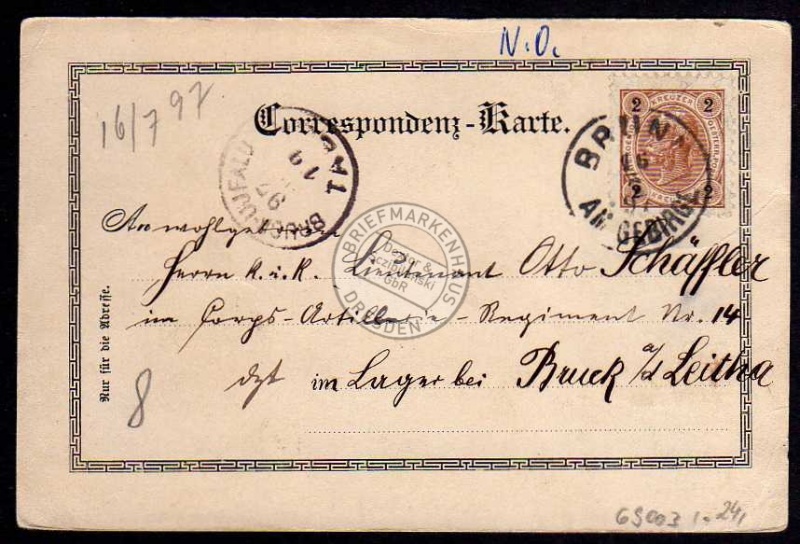 N.O.
16/7 97.
Correspondenz-Karte.
2 KREUZER 2
2 2
BRUNN
16
AM GEBIRGE
19
97
BRUCK-UJFALU
An wohlgeboren
Herrn k. u. k. Lieutenant Otto Schäffler
im Corps-Artillerie-Regiment Nr. 14
dzt im Lager bei Bruck a/d Leitha
Nur für die Adresse.
8
BRIEFMARKENHAUS
GbR
DRESDEN